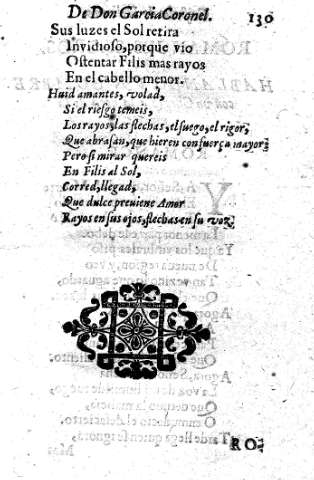 De Don Garcia Coronel. 130
Sus luzes el Sol retira
Invidioso, porque vio
Ostentar Filis mas rayos
En el cabello menor.
Huid amantes, volad,
Si el riesgo temeis,
Los rayos, las flechas, el fuego, el rigor,
Que abrasan, que hieren con fuerça mayor;
Pero si mirar quereis
En Filis al Sol,
Corred, llegad,
Que dulce previene Amor
Rayos en sus ojos, flechas en su voz.
RO.